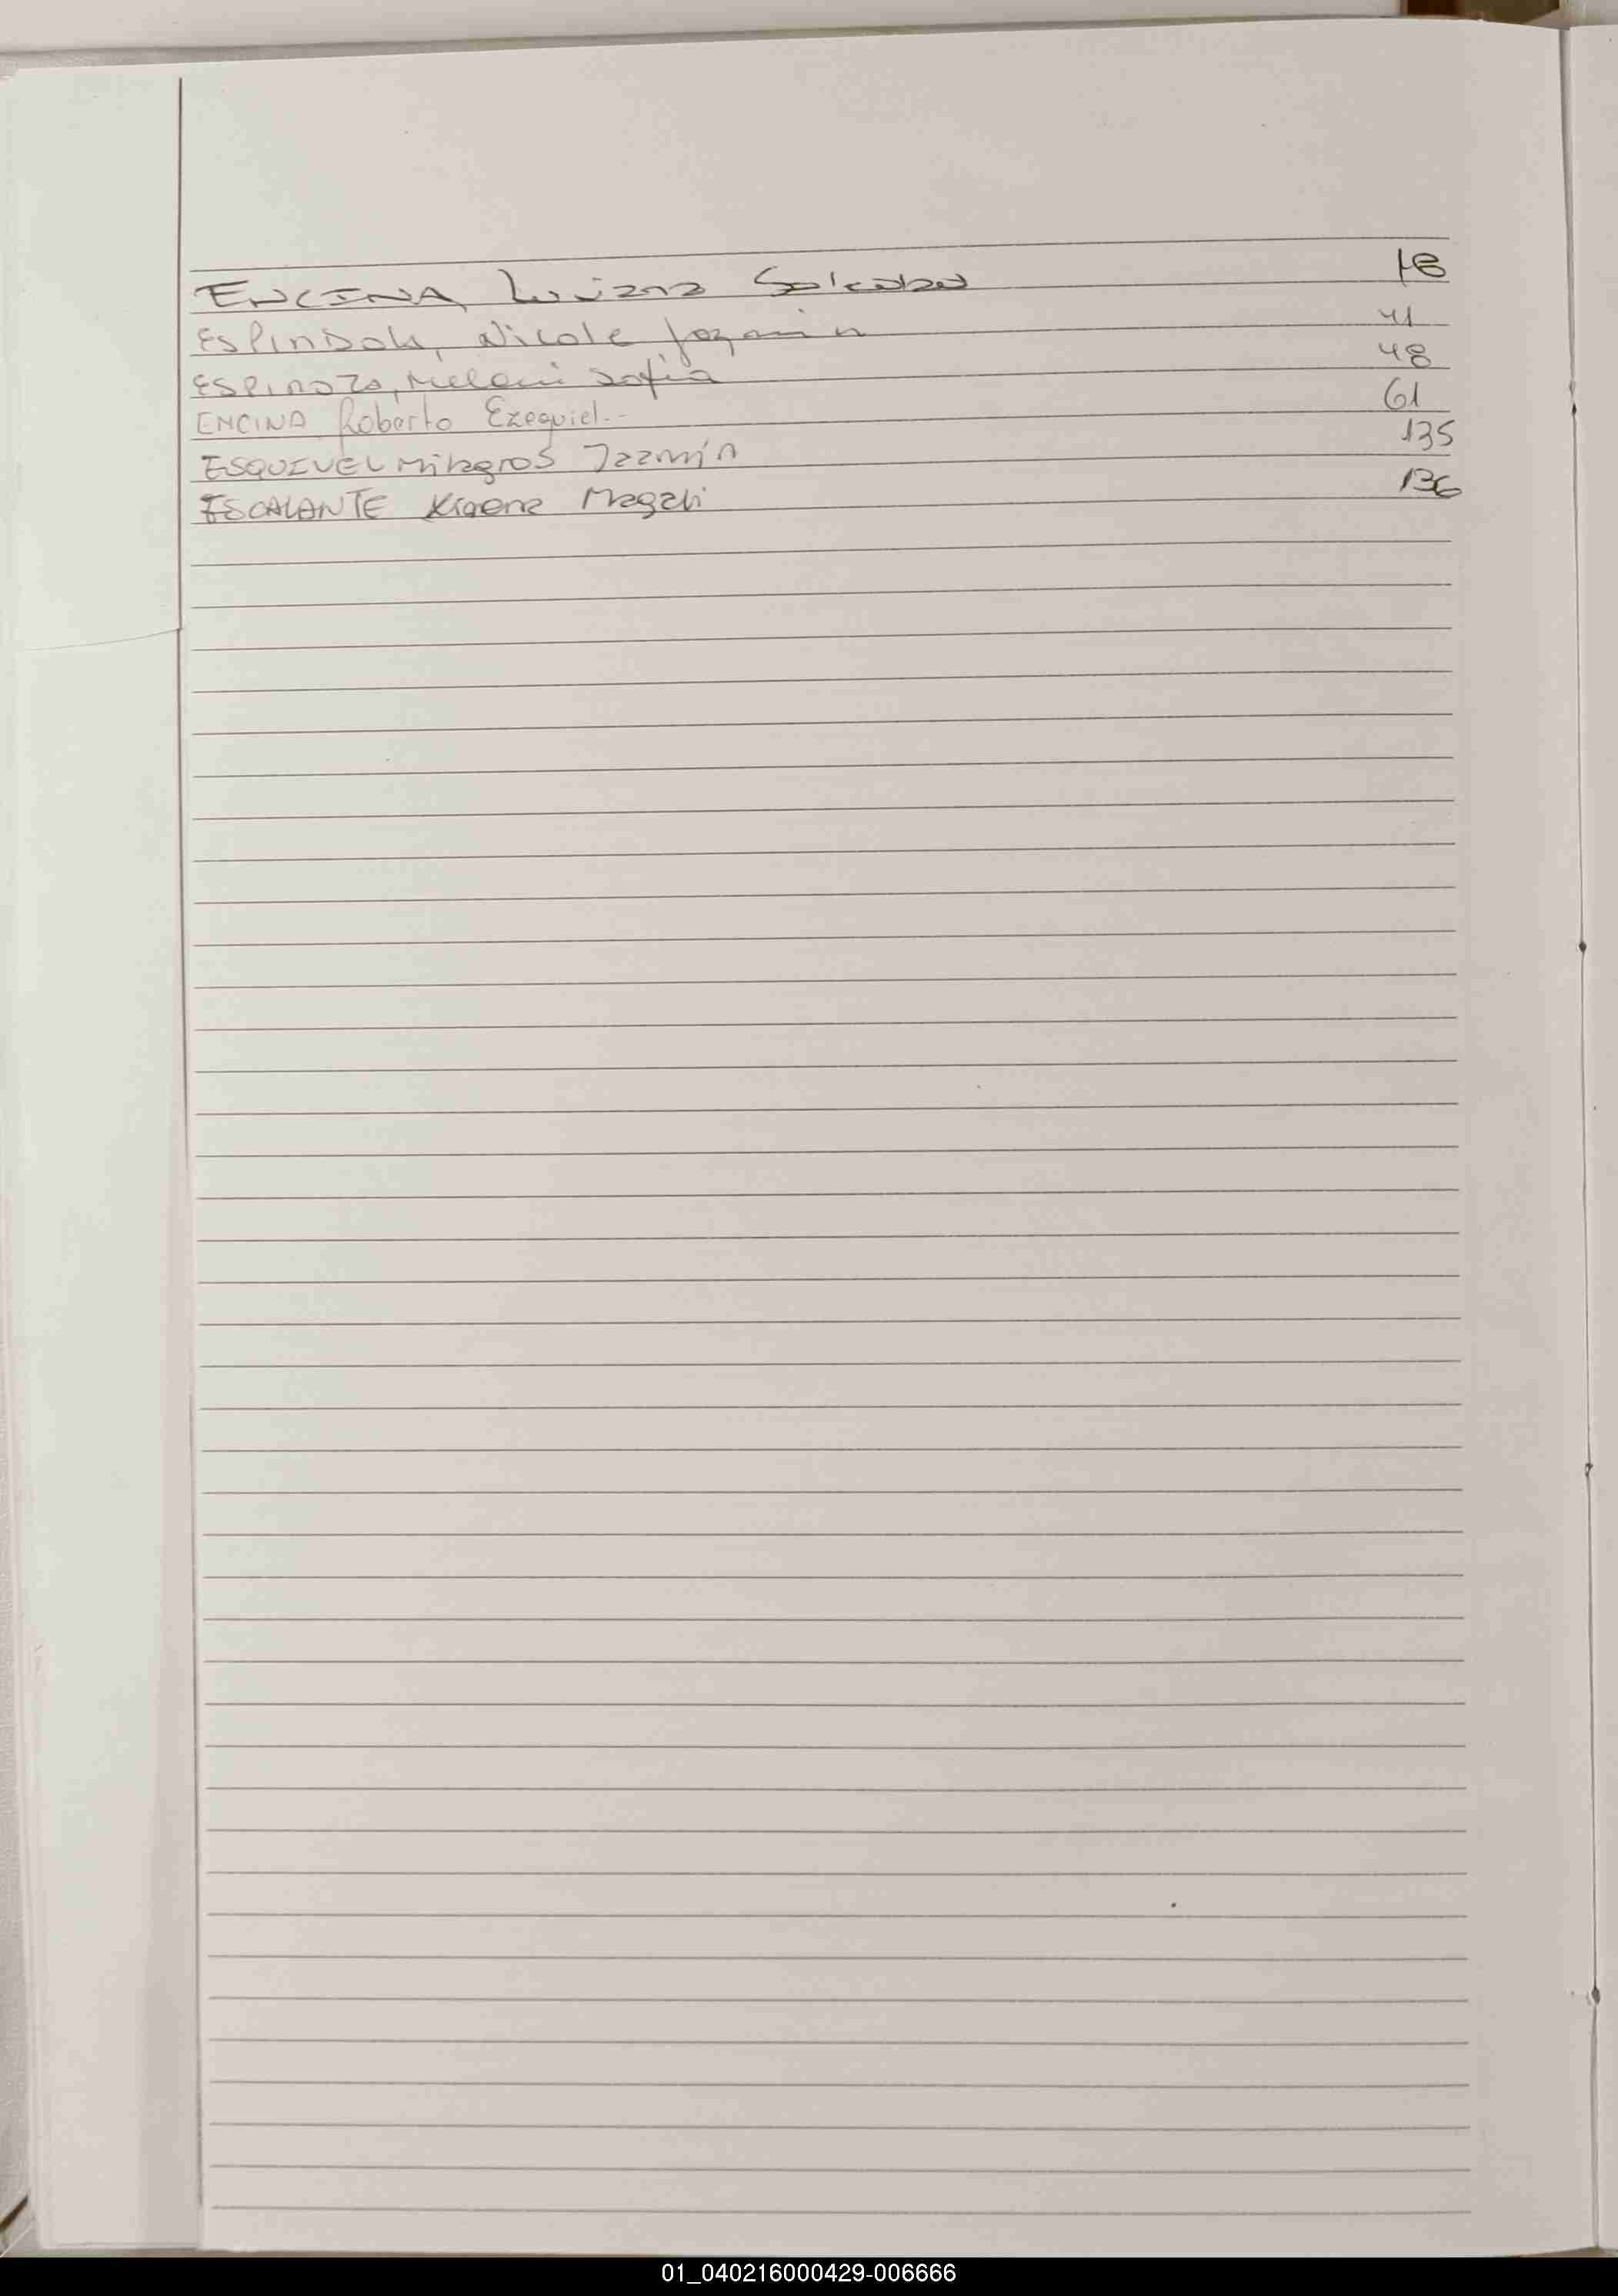 ENCINA, Luciana Soledad 18
ESPINDOLA, Nicole Jazmin 41
ESPINOZA, Melani Sofia 48
ENCINA Roberto Ezequiel.-- 61
ESQUIVEL Milagros Jazmín 135
ESCALANTE Magali 136
01_040216000429-006666